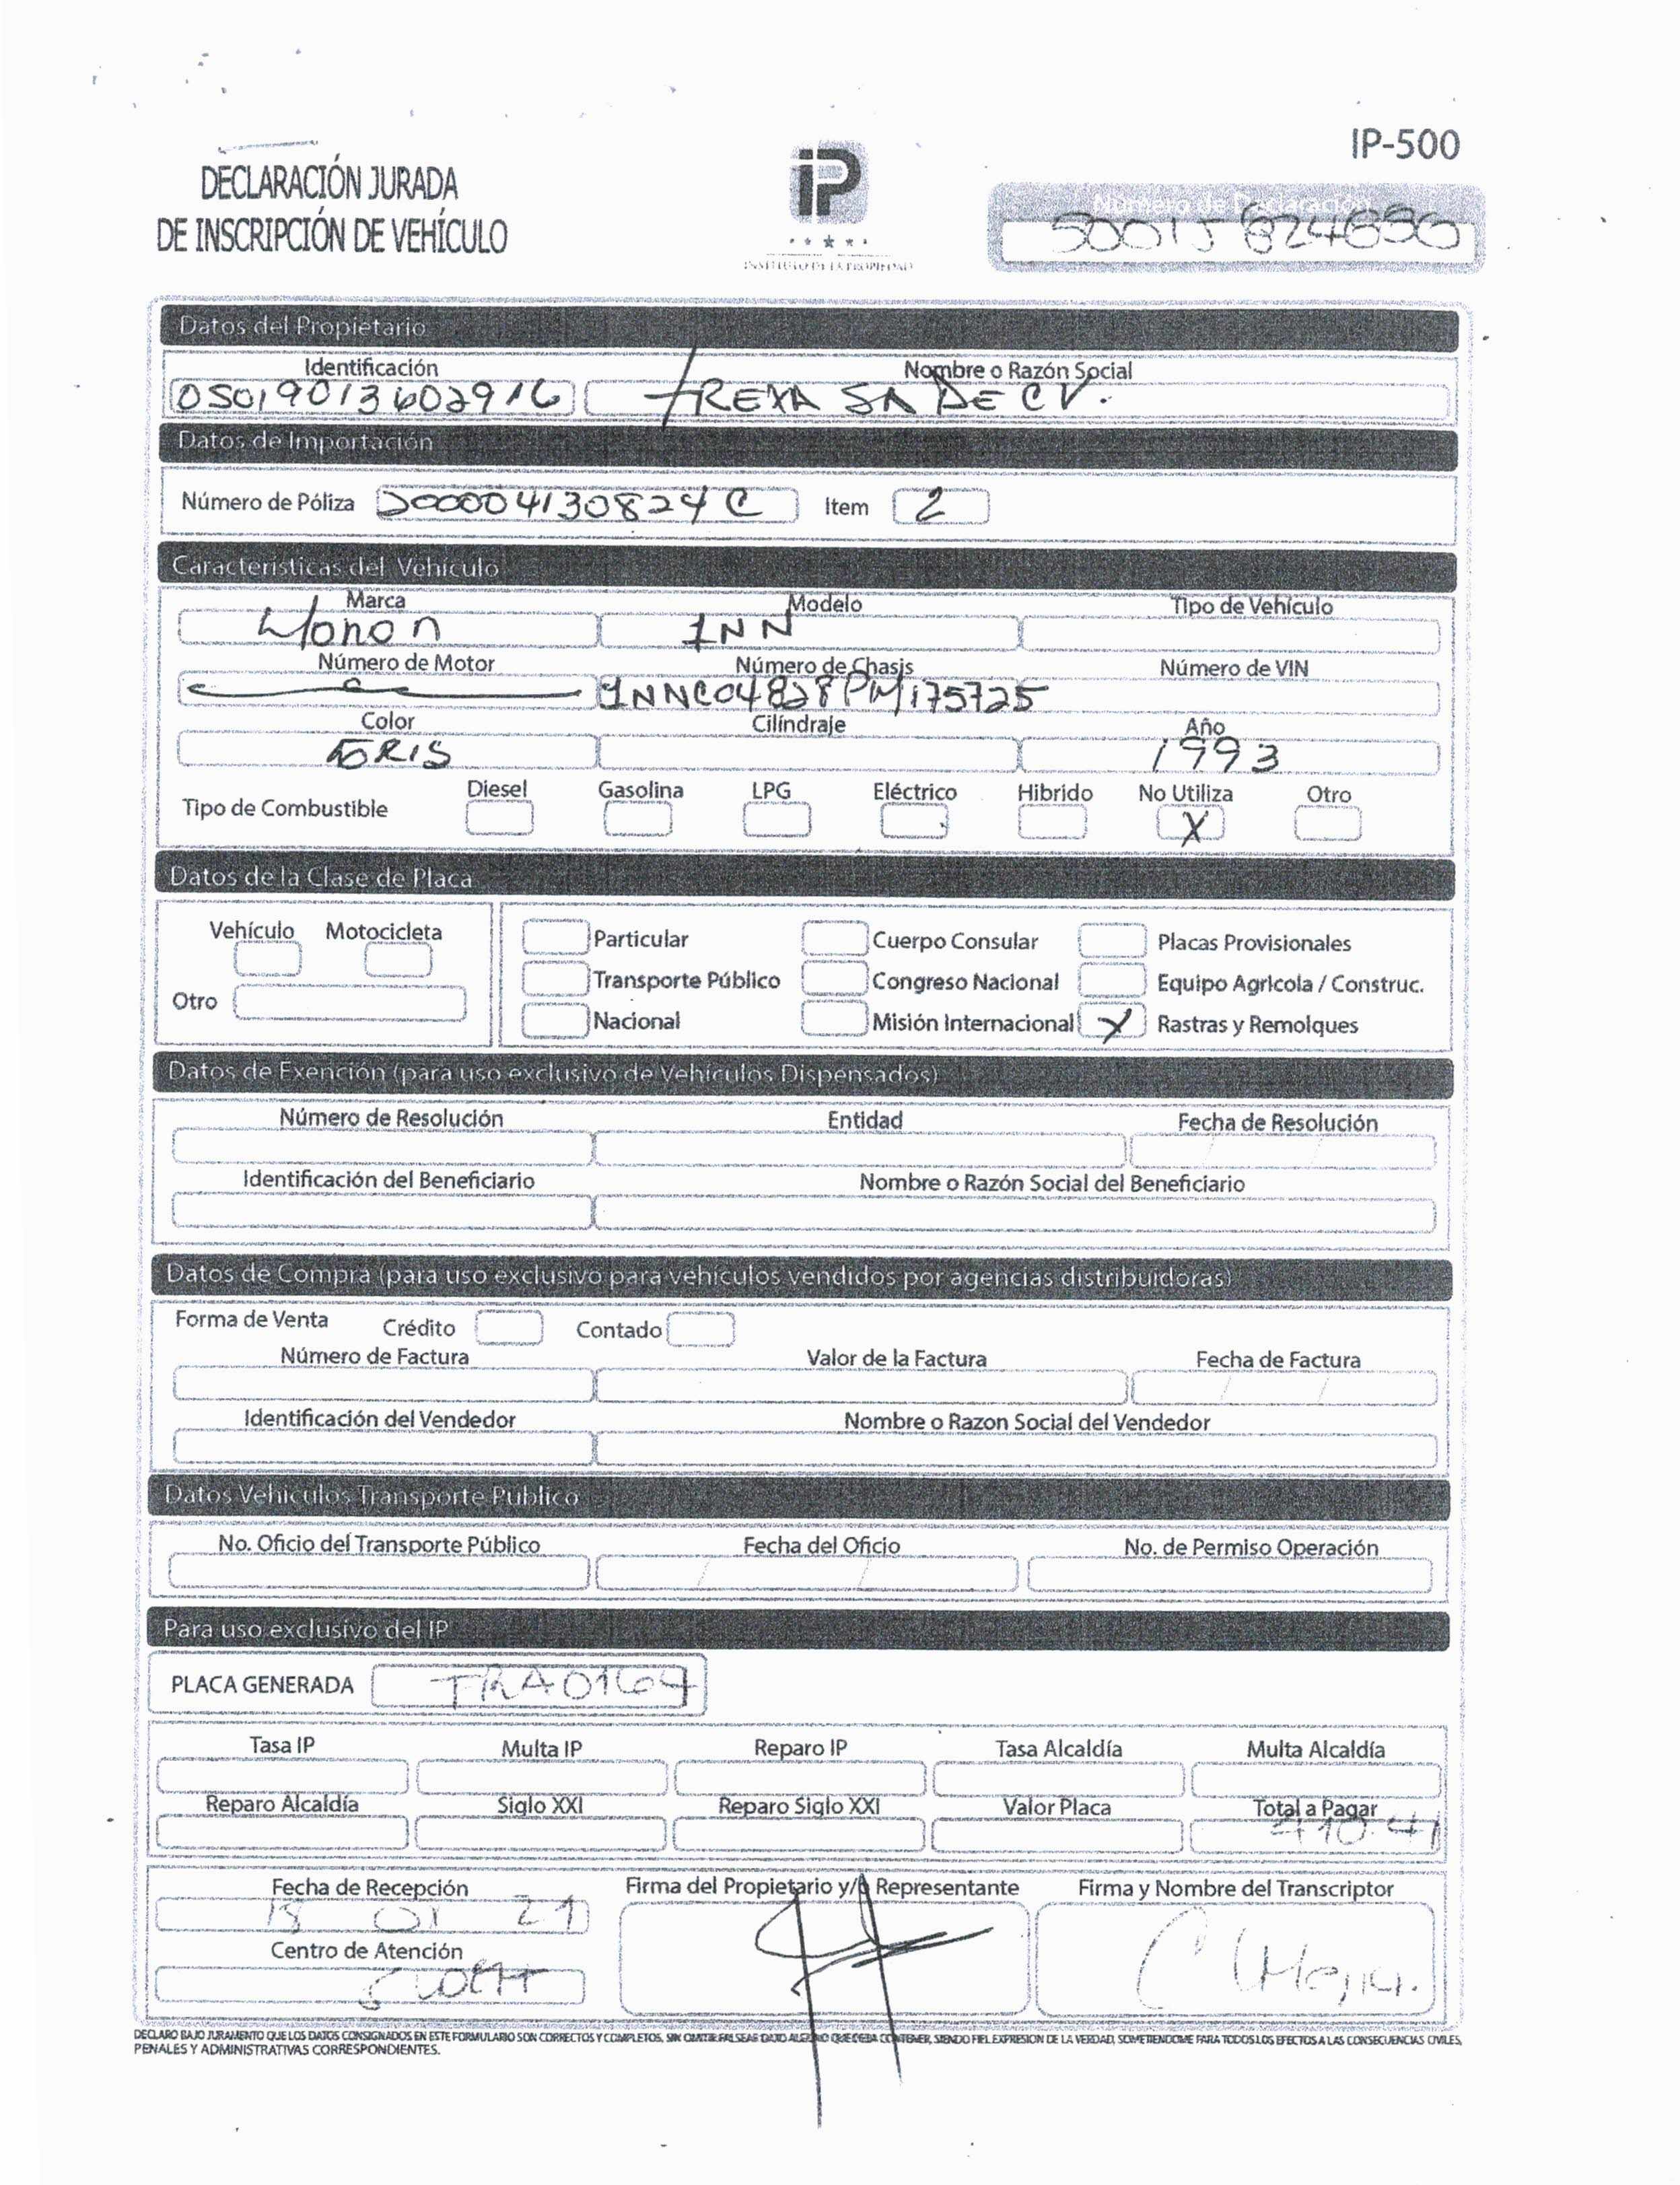 IP-500
DECLARACIÓN JURADA
DE INSCRIPCIÓN DE VEHÍCULO
iP
INSTITUTO DE LA PROPIEDAD
Número de Declaración
Datos del Propietario
Identificación Nombre o Razón Social
05019013602916 TREXA SA DE CV.
Datos de Importación
Número de Póliza Item 2
Características del Vehículo
Marca Modelo Tipo de Vehículo
Monon 1NN
Número de Motor Número de Chasis Número de VIN
1NNC04828PM175725
Color Cilíndraje Año
GRIS 1993
Tipo de Combustible Diesel Gasolina LPG Eléctrico Hibrido No Utiliza Otro
X
Datos de la Clase de Placa
Vehículo Motocicleta
Otro
Particular Cuerpo Consular Placas Provisionales
Transporte Público Congreso Nacional Equipo Agrícola / Construc.
Nacional Misión Internacional X Rastras y Remolques
Datos de Exención (para uso exclusivo de Vehículos Dispensados)
Número de Resolución Entidad Fecha de Resolución
Identificación del Beneficiario Nombre o Razón Social del Beneficiario
Datos de Compra (para uso exclusivo para vehículos vendidos por agencias distribuidoras)
Forma de Venta Crédito Contado
Número de Factura Valor de la Factura Fecha de Factura
Identificación del Vendedor Nombre o Razon Social del Vendedor
Datos Vehículos Transporte Público
No. Oficio del Transporte Público Fecha del Oficio No. de Permiso Operación
Para uso exclusivo del IP
PLACA GENERADA
Tasa IP Multa IP Reparo IP Tasa Alcaldía Multa Alcaldía
Reparo Alcaldía Siglo XXI Reparo Siglo XXI Valor Placa Total a Pagar
Fecha de Recepción Firma del Propietario y/o Representante Firma y Nombre del Transcriptor
Centro de Atención
DECLARO BAJO JURAMENTO QUE LOS DATOS CONSIGNADOS EN ESTE FORMULARIO SON CORRECTOS Y COMPLETOS, SIN OMITIR FALSEAR DATO ALGUNO QUE DEBA CONTENER, SIENDO FIEL EXPRESION DE LA VERDAD, SOMETIENDOME PARA TODOS LOS EFECTOS A LAS CONSECUENCIAS CIVILES,
PENALES Y ADMINISTRATIVAS CORRESPONDIENTES.